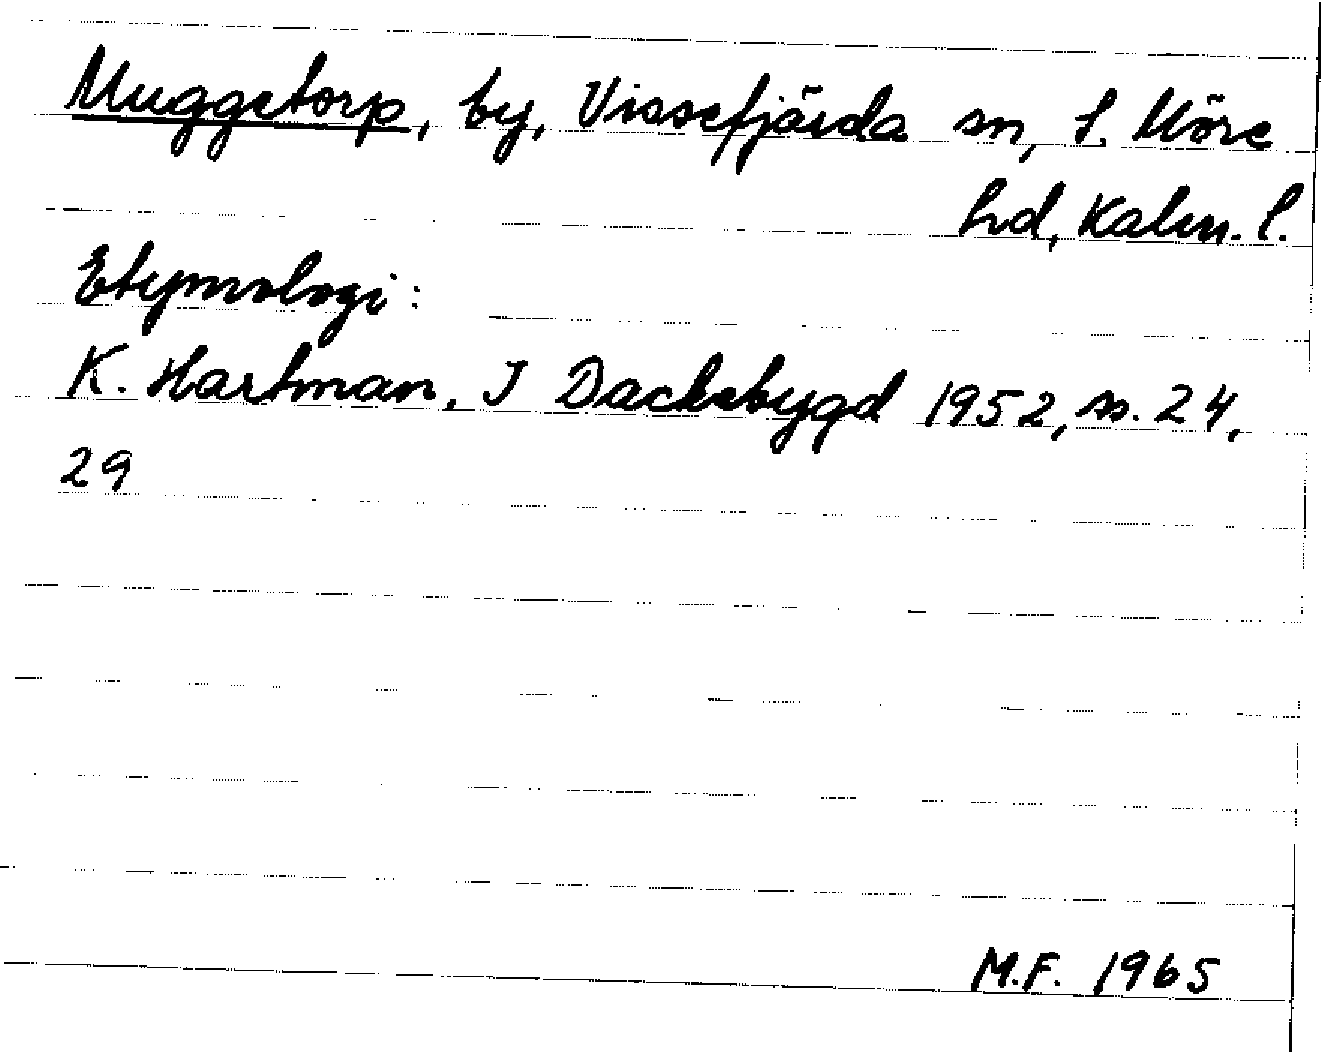 Muggetorp, by, Vissefjärda sn, S. Möre
hd, Kalm. l.
Etymologi:
K. Hartman, I Dackebygd 1952, ss. 24,
29
M.F. 1965